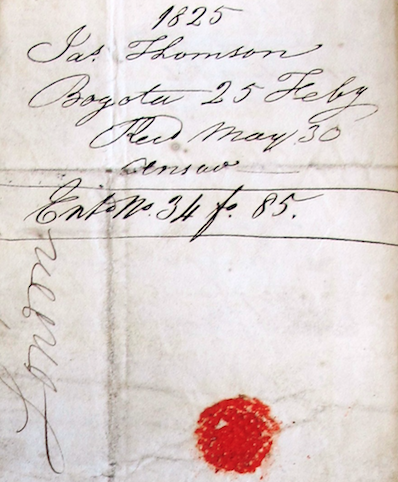 1825
Jas. Thomson
Bogota 25 Feby
Recd May 30
answd
Entd No. 34 fo. 85.